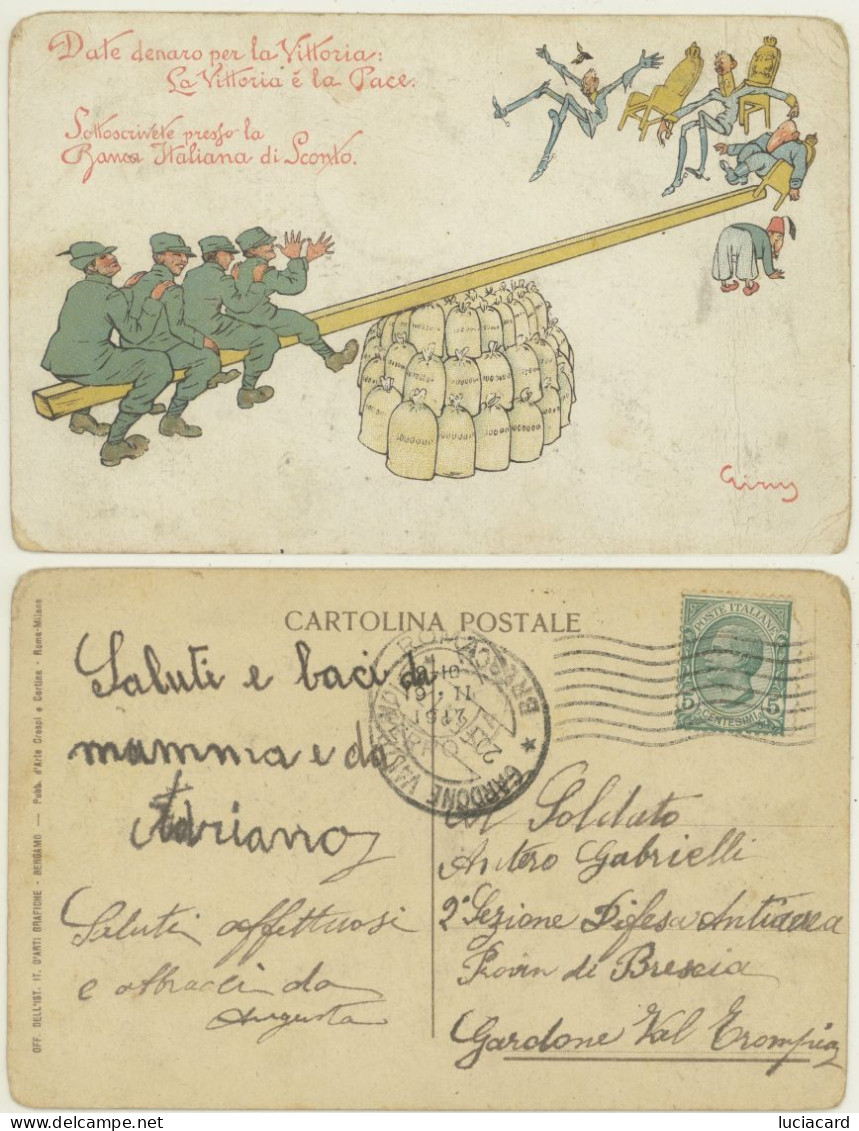 Date denaro per la Vittoria:
La Vittoria è la Pace.
Sottoscrivete presso la
Banca Italiana di Sconto.
CARTOLINA POSTALE
POSTE ITALIANE
5 5
CENTESIMI
BRESCIA
GARDONE VAL
Saluti e baci di
mamma e da
Adriano
Saluti affettuosi
e abbracci da
Augusta
Al Soldato
Antero Gabrielli
2ª Sezione Difesa Antiaerea
Provin di Brescia
Gardone Val Trompia
OFF. DELL'IST. IT. D'ARTI GRAFICHE - BERGAMO — Pubb. d'Arte Crespi e Cortine - Roma-Milano
luciacard